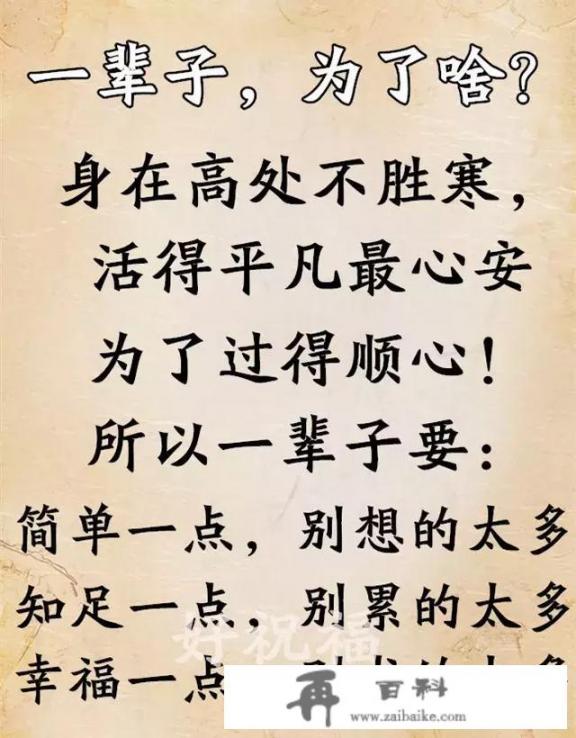 一辈子，为了啥？
身在高处不胜寒，
活得平凡最心安
为了过得顺心！
所以一辈子要：
简单一点，别想的太多
知足一点，别累的太多
好祝福
幸福一点
再百科
www.zaibaike.com